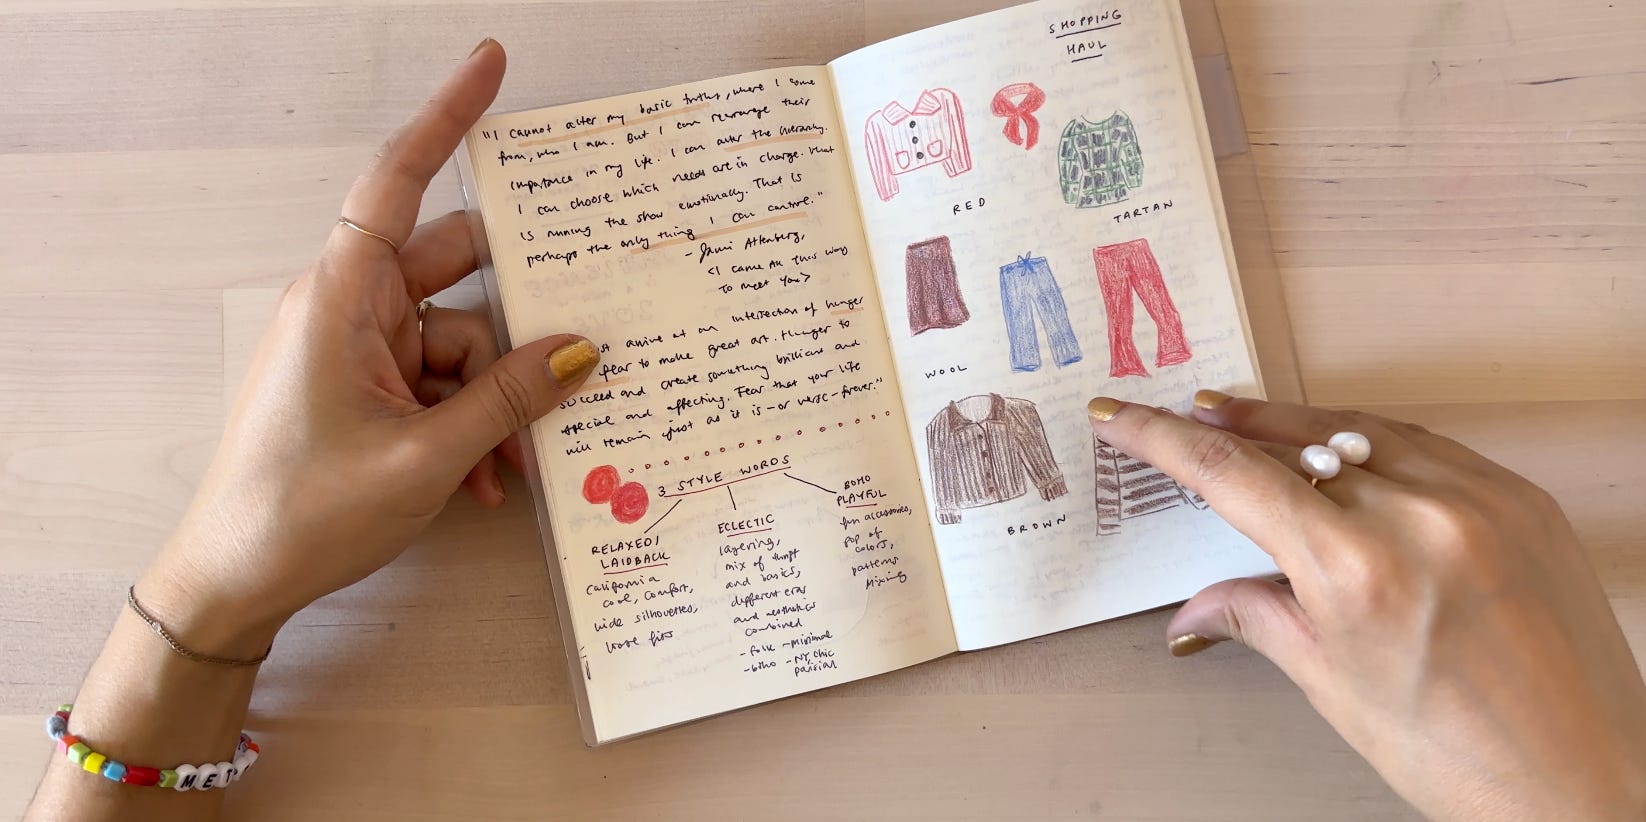 "I cannot alter my basic truths, where I come
from, who I am. But I can rearrange their
importance in my life. I can alter the hierarchy.
I can choose which needs are in charge. What
is running the show emotionally. That is
perhaps the only thing I can control."
- Jami Attenberg,
<I came All this way
to meet You>
arrive at an intersection of hunger
fear to make great art. Hunger to
succeed and create something brilliant and
special and affecting. Fear that your life
will remain just as it is - or worse - forever."
3 STYLE WORDS
RELAXED/
LAIDBACK
California
cool, comfort,
wide silhouettes,
loose fits
ECLECTIC
layering,
mix of thrift
and basics,
different eras
and aesthetics
combined
- folk - minimal
- boho - NY chic
parisian
BOHO
PLAYFUL
fun accessories,
pop of
colors,
patterns
Mixing
SHOPPING
HAUL
RED
TARTAN
WOOL
BROWN
MET